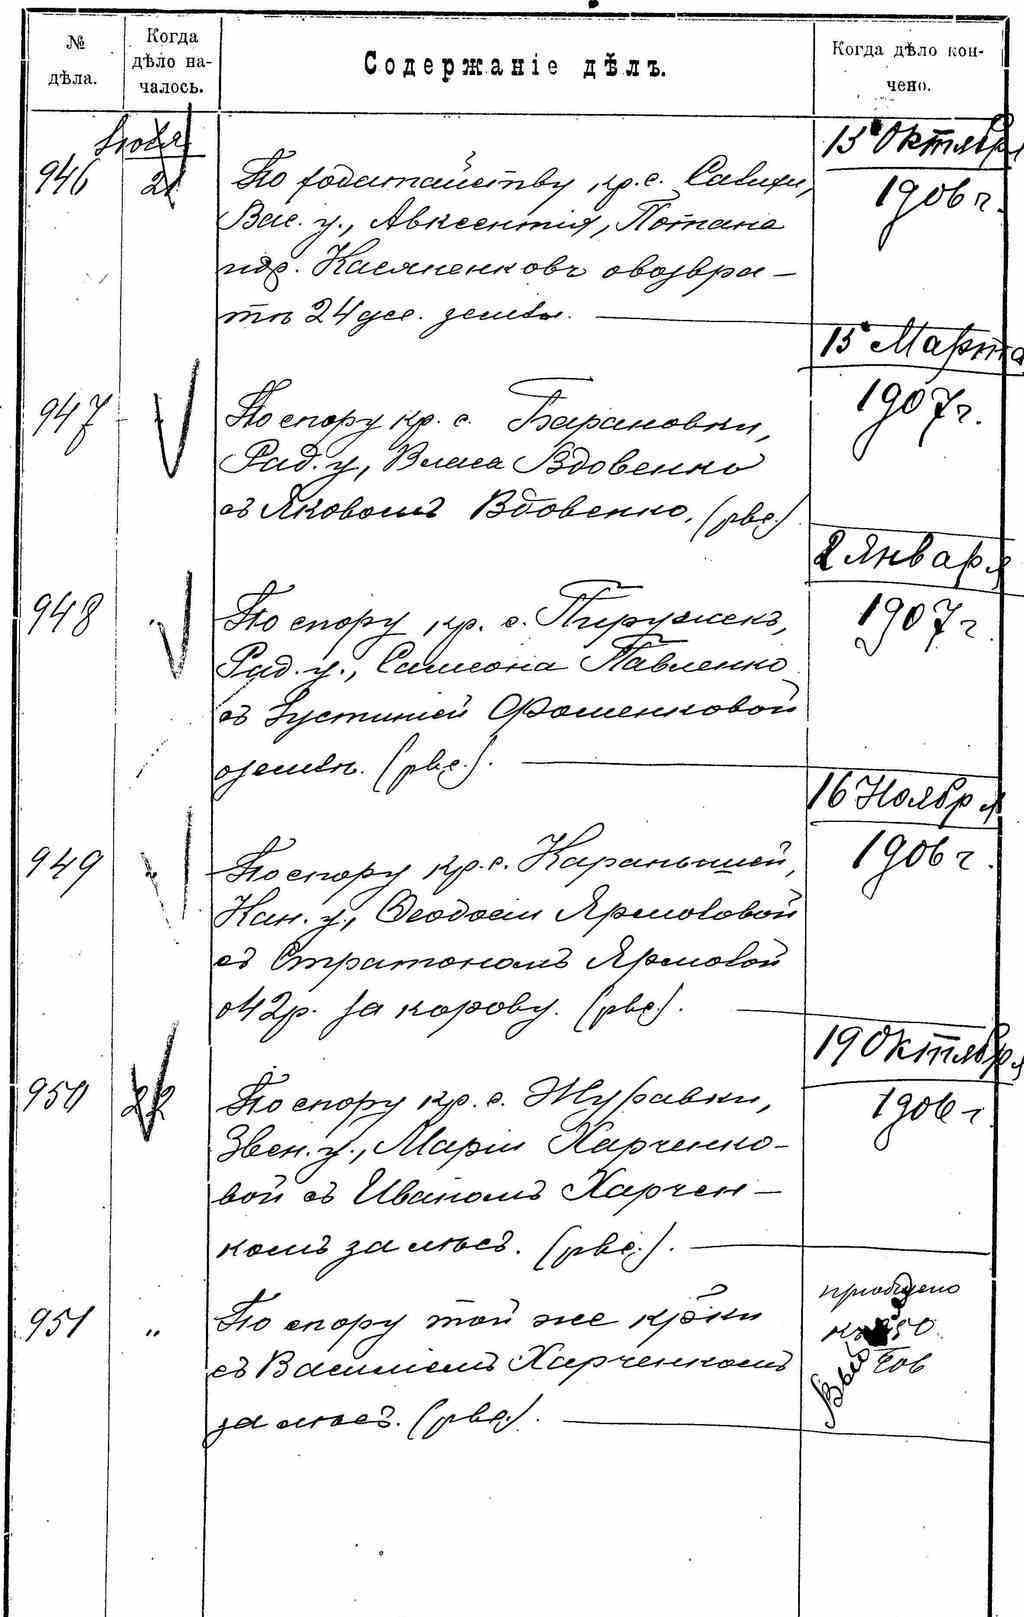 № дѣла.
Когда дѣло на-
чалось.
Содержаніе дѣлъ.
Когда дѣло кон-
чено.
946
21
По ходатайству кр. с.
Вас. у., Авксентія, Потапа
и др. Касяненковъ о возвра-
тѣ 24 дес. земли.
15 Октября
1906 г.
947
По спору кр. с. Барановки,
Рад. у., Власа Вдовенко
съ Яковомъ Вдовенко.
15 Марта
1907 г.
948
"
По спору кр. с.
Рад. у., Самсона Павленко
съ Іустиніей Фоменковой
о землѣ.
2 Января
1907 г.
949
"
По спору кр. с. Карапышей,
Кан. у., Ѳеодосіи Ярмоловой
съ Стратономъ
о 42 р. за корову.
16 Ноября
1906 г.
950
22
По спору кр. с. Журавки,
Звен. у., Маріи Харченко-
вой съ Иваномъ Харчен-
комъ за лѣсъ.
19 Октября
1906 г
951
"
По спору той же кр-ки
съ Василіемъ Харченкомъ
за лѣсъ.
пріобщено
къ 950